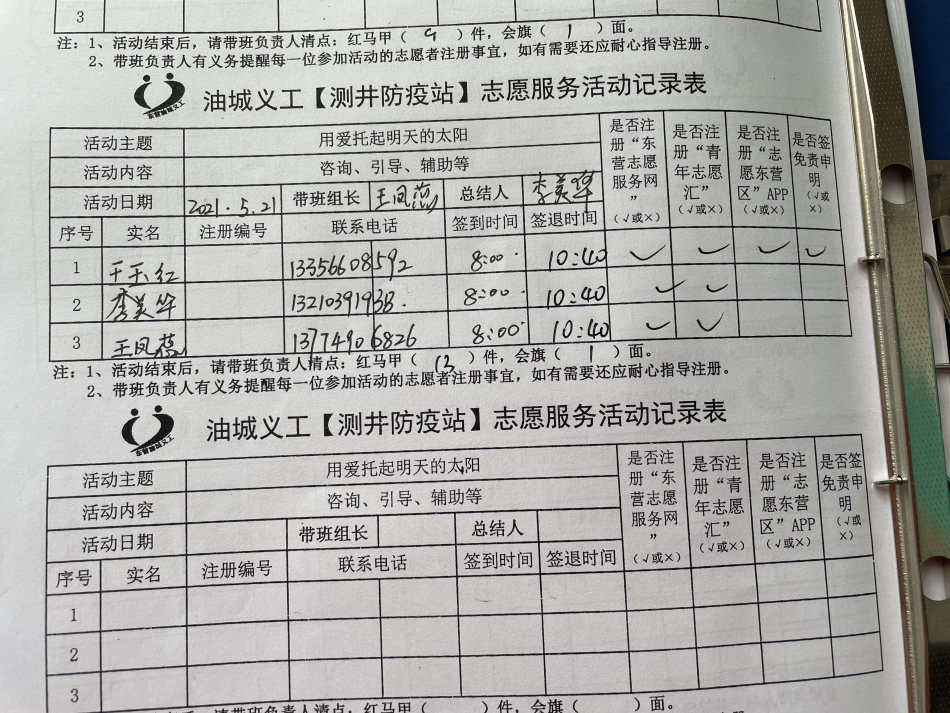 3
注：1、活动结束后，请带班负责人清点：红马甲（ 9 ）件，会旗（ 1 ）面。
2、带班负责人有义务提醒每一位参加活动的志愿者注册事宜，如有需要还应耐心指导注册。
油城义工【测井防疫站】志愿服务活动记录表
活动主题 用爱托起明天的太阳 是否注册“东营志愿服务网”（√或×） 是否注册“青年志愿汇”（√或×） 是否注册“志愿东营区”APP（√或×） 是否签免责申明（√或×）
活动内容 咨询、引导、辅助等
活动日期 2021.5.21 带班组长 王凤蕊 总结人 李美华
序号 实名 注册编号 联系电话 签到时间 签退时间
1 王玉红 13356608592 8:00 10:40 ✓ ✓ ✓ ✓
2 李美华 13210391938 8:00 10:40 ✓ ✓
3 王凤蕊 13774906826 8:00 10:40 ✓ ✓
注：1、活动结束后，请带班负责人清点：红马甲（ 13 ）件，会旗（ 1 ）面。
2、带班负责人有义务提醒每一位参加活动的志愿者注册事宜，如有需要还应耐心指导注册。
东营油城义工
油城义工【测井防疫站】志愿服务活动记录表
活动主题 用爱托起明天的太阳 是否注册“东营志愿服务网”（√或×） 是否注册“青年志愿汇”（√或×） 是否注册“志愿东营区”APP（√或×） 是否签免责申明（√或×）
活动内容 咨询、引导、辅助等
活动日期 带班组长 总结人
序号 实名 注册编号 联系电话 签到时间 签退时间
1
2
3
请带班负责人清点：红马甲（ ）件，会旗（ ）面。